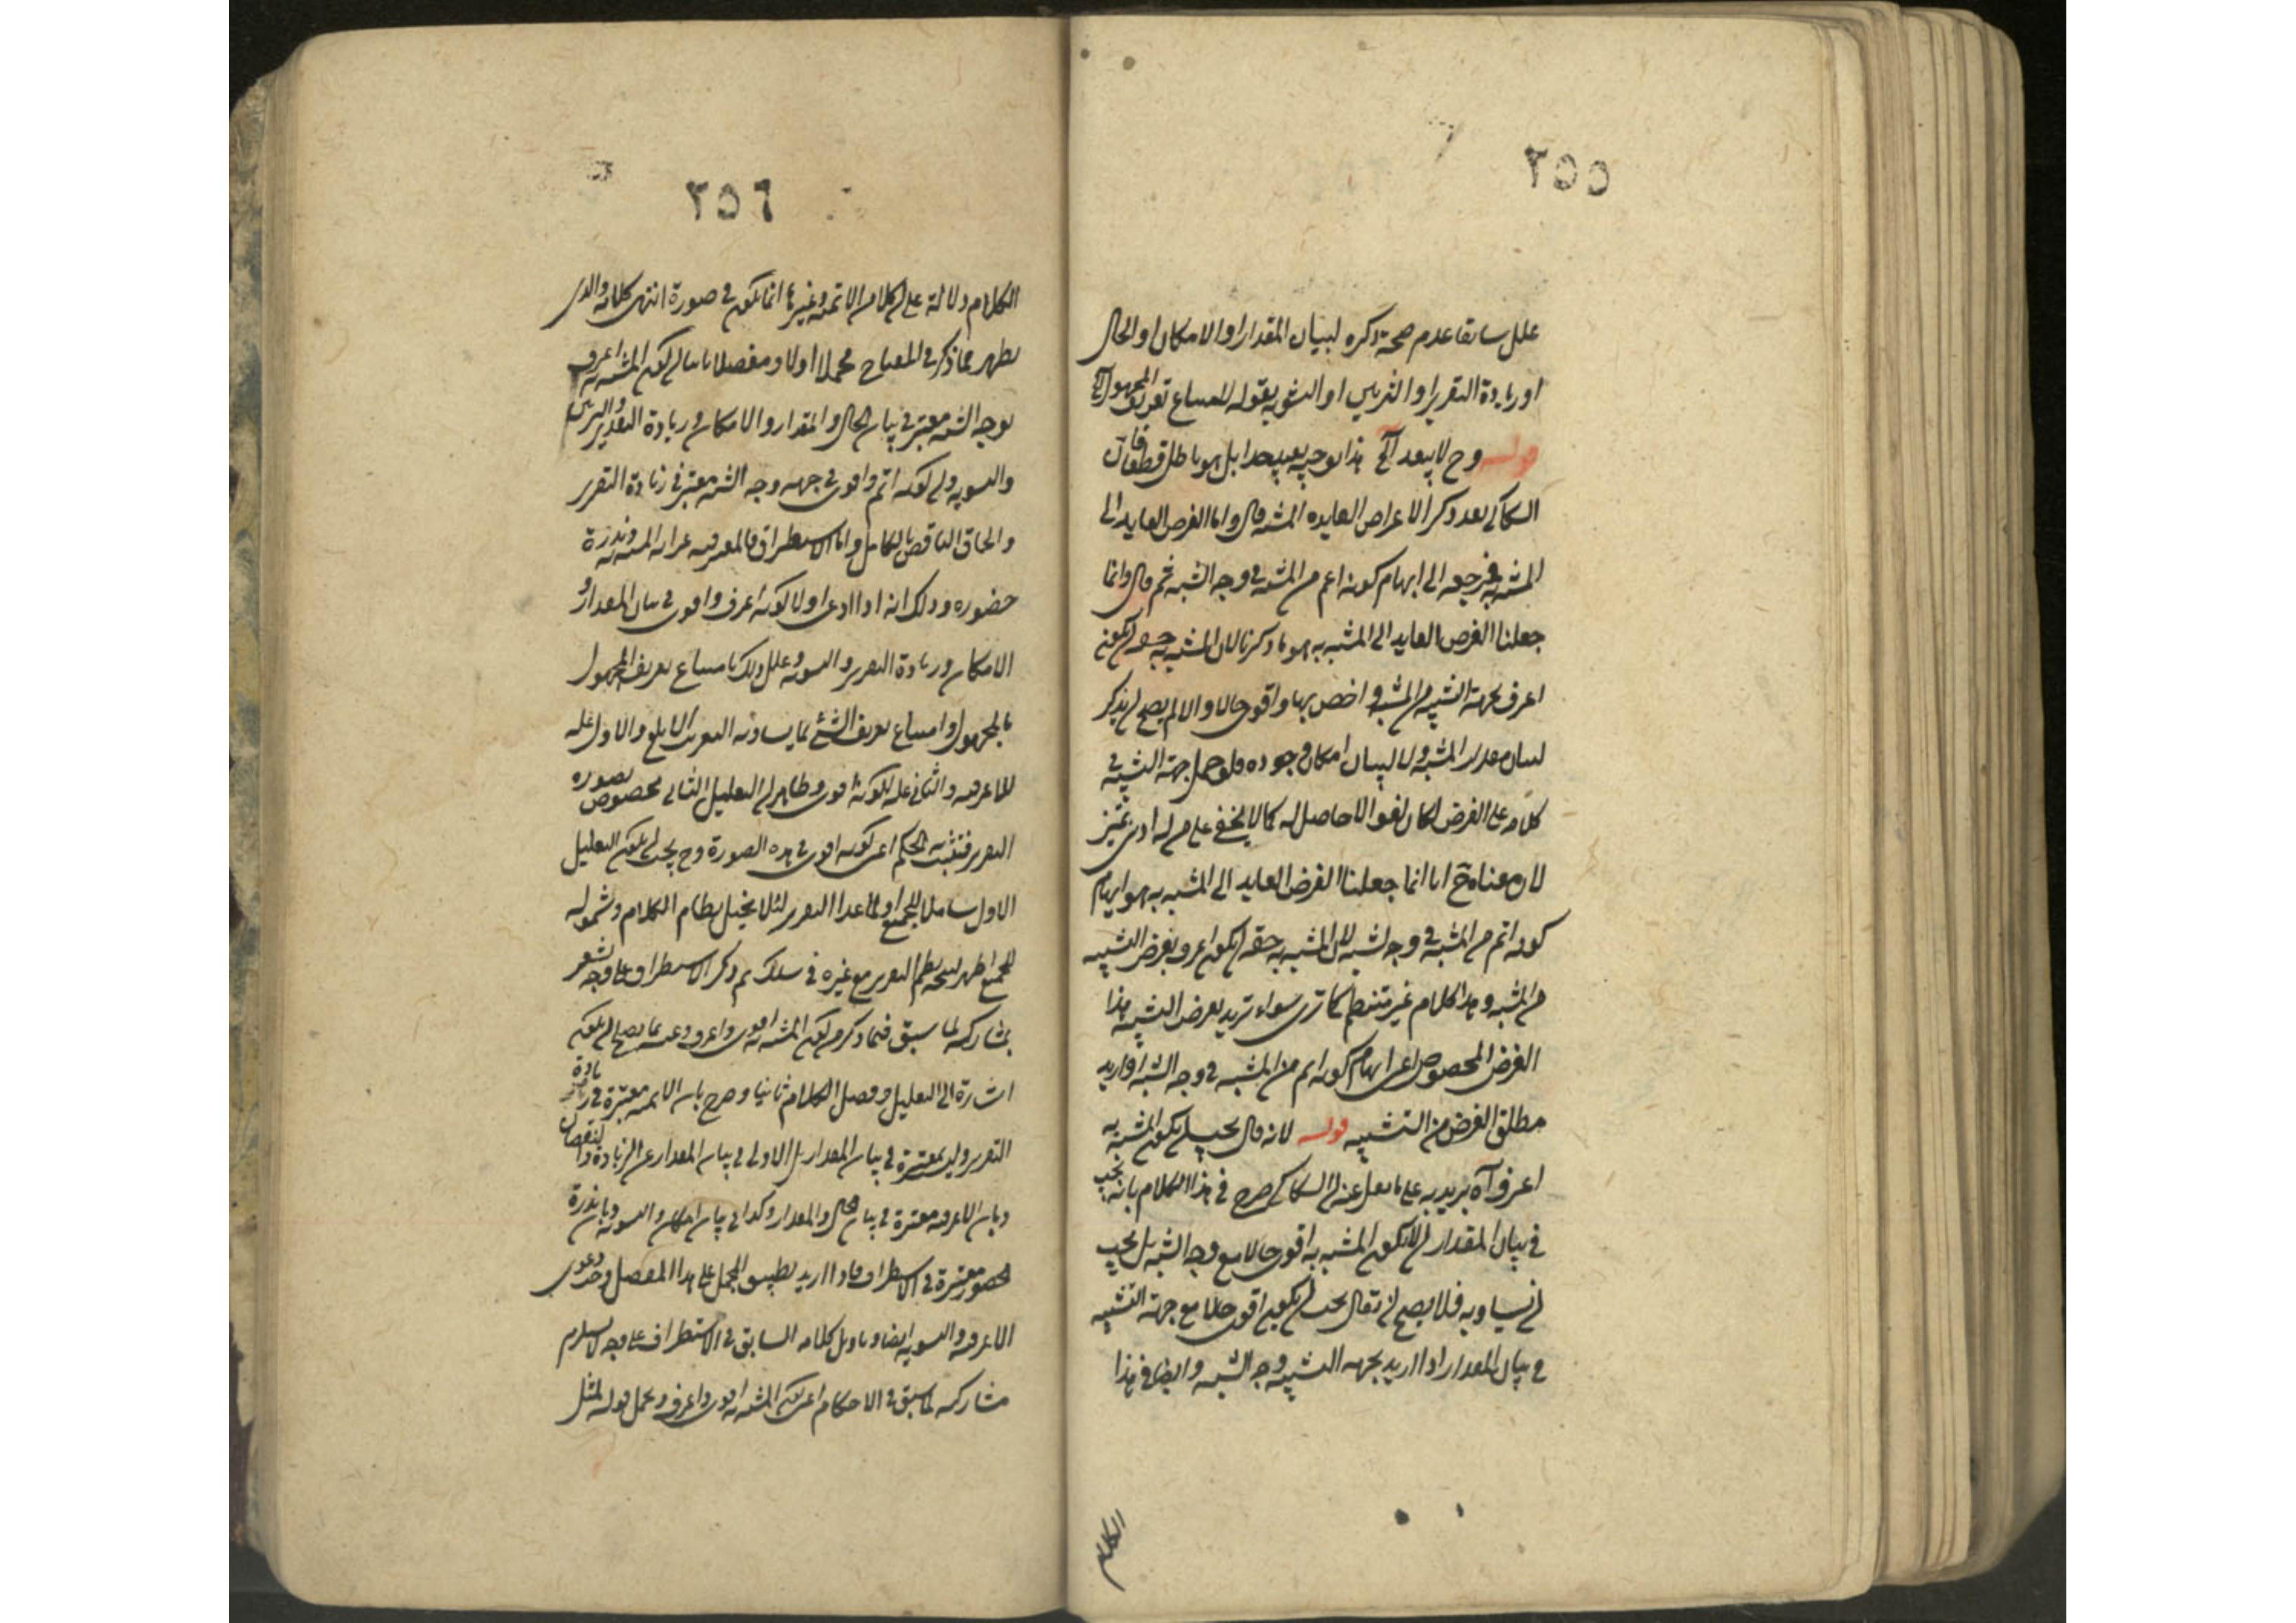 ٢٥٥
علل سابقا عدم صحة ذكره لبيان المقدار او الامكان او الحال
او زيادة التقرير او التزيين او التشويه بقوله لامتناع تعريف المجهول الخ
قوله وح لا يبعد الخ هذا توجيه بعيد جدا بل هو باطل قطعا فان
السكاكي بعد ذكر الاغراض العايدة المشبه قال واما الغرض العايد الى
المشبه به فمرجعه الى ايهام كونه اتم من المشبه في وجه الشبه ثم قال وانما
جعلنا الغرض العايد الى المشبه به هو ما ذكرنا لان المشبه به حقه ان يكون
اعرف بجهة التشبيه من المشبه و اخص بها و اقوى حالا و الا لم يصح ان يذكر
لبيان مقدار المشبه ولا لبيان امكان وجوده فلو حمل جهة التشبيه في
كلامه على الغرض لكان لغوا لا حاصل له كما لا يخفى على من له ادنى تميز
لان معناه ح انا انما جعلنا الغرض العايد الى المشبه به هو ايهام
كونه اتم من المشبه في وجه الشبه لان المشبه به حقه ان يكون اعرف بغرض التشبيه
من المشبه و هذا كلام غير منتظم كما ترى سواء تريد بغرض التشبيه هذا
الغرض المخصوص اعنى ايهام كونه اتم من المشبه في وجه الشبه او اريد
مطلق الغرض من التشبيه قوله لانه قال يجب ان يكون المشبه به
اعرف آه يريد به على ما نقل عنه ان السكاكي صرح في هذا الكلام بانه يجب
في بيان المقدار ان لا يكون المشبه به اقوى حالا مع وجه الشبه بل يجب
ان يساويه فلا يصح ان يقال يجب ان يكون اقوى حالا مع جهة التشبيه
في بيان المقدار اذا اريد بجهة التشبيه وجه الشبه و ايضا في هذا
الكلام
٢٥٦
الكلام دلالة على ان كلا من الاتمية وغيرها انما يكون في صورة انتهى كلامه والذى
يظهر مما ذكر في المفتاح مجملا اولا ومفصلا ثانيا ان كون المشبه به اعرف
بوجه الشبه معتبر في بيان الحال والمقدار والامكان وزيادة التقرير والتزيين
والتشويه وان كونه اتم واقوى في جهة وجه الشبه معتبر في زيادة التقرير
والحاق الناقص بالكامل واما الاستطراف فالمعتبر فيه غرابة المشبه به وندرة
حضوره وذلك انه اذا ادعى اولا كونه اعرف واقوى في بيان المقدار و
الامكان وزيادة التقرير والتشويه وعلل ذلك بامتناع تعريف المجهول
بالمجهول وامتناع تعريف الشئ بما يساويه التعريف الابلغ والاول علة
للاعرفية والثاني علة لكونه اقوى وظاهر ان التعليل الثاني مخصوص بصورة
التقرير فتثبت به الحكم اعنى كونه اقوى في هذه الصورة وح يجب ان يكون التعليل
الاول شاملا للجميع او لما عدا التقرير لئلا يختل نظام الكلام وشموله
للجميع اظهر ليصح نظم التقرير مع غيره في سلك ثم ذكر الاستطراف على وجه يشعر
بمشاركته لما سبق فيما ذكر من كون المشبه به اقوى واعرف وعقبه بما يصلح ان يكون
اشارة الى التعليل وفصل الكلام ثانيا وصرح بان الاتمية معتبرة في زيادة
التقرير وليست معتبرة في بيان المقدار بل الاولى في بيان المقدار عن الزيادة والنقصان
وبان الاعرفية معتبرة في بيان الحال والمقدار وكذا في بيان الامكان والتشويه وبان ندرة
الحضور معتبرة في الاستطراف فاذا اريد تطبيق المجمل على هذا المفصل وجد دعوى
الاعرفية والتشويه ايضا وتاويل كلامه السابق في الاستطراف على وجه لا يستلزم
مشاركته لما سبق في الاحكام اعنى كون المشبه به اقوى واعرف ويحمل قوله لمثل